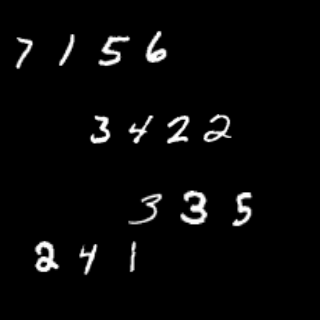 7 1 5 6
3 4 2 2
3 3 5
2 4 1